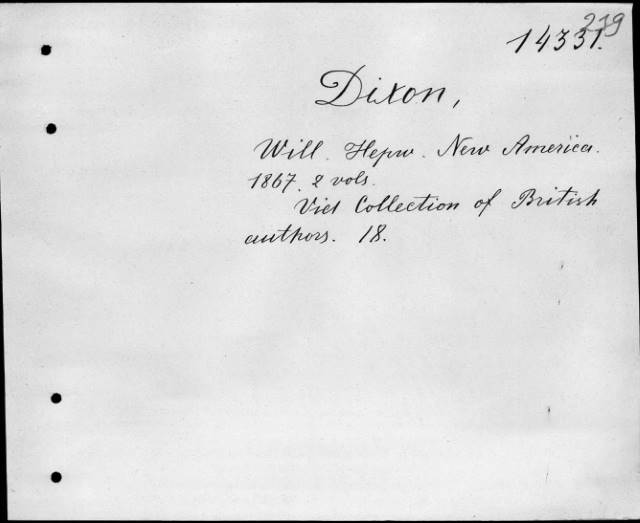 219
14331.
Dixon,
Will. Hepw. New America.
1867. 2 vols.
Vid Collection of British
authors. 18.